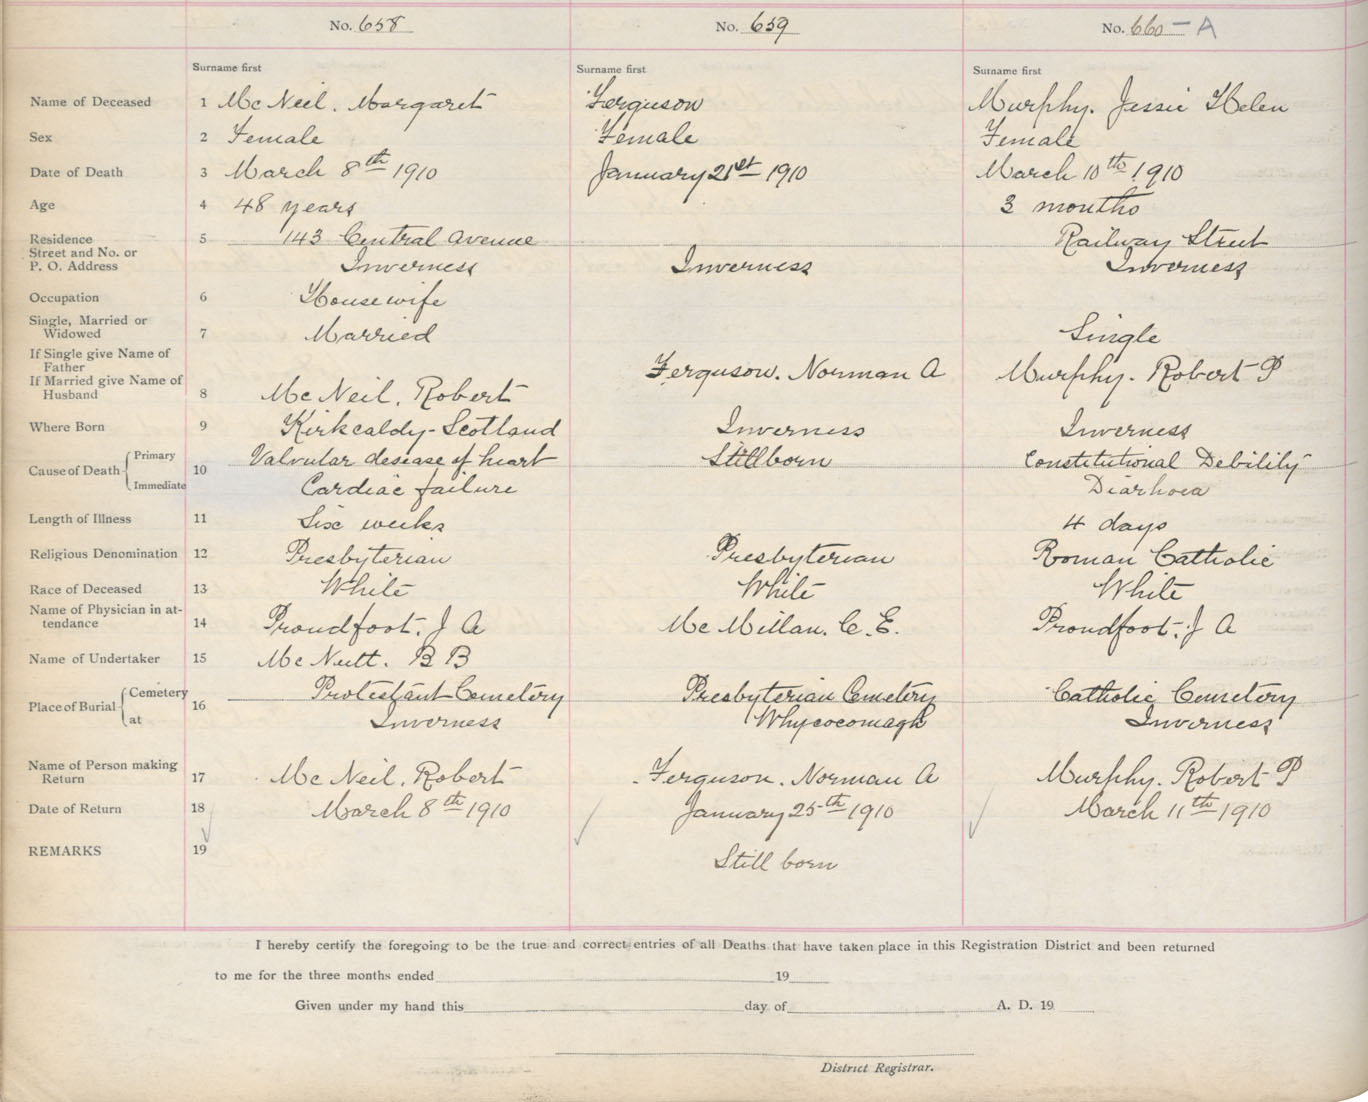 No. 658 No. 659 No. 660 - A
Surname first Surname first Surname first
Name of Deceased 1 McNeil. Margaret Ferguson Murphy. Jessie Helen
Sex 2 Female Female Female
Date of Death 3 March 8th 1910 January 21st 1910 March 10th 1910
Age 4 48 years 3 months
Residence 5 143 Central Avenue Railway Street
Street and No. or
P. O. Address Inverness Inverness Inverness
Occupation 6 Housewife
Single, Married or
Widowed 7 Married Single
If Single give Name of
Father Ferguson. Norman A Murphy. Robert P
If Married give Name of
Husband 8 McNeil. Robert
Where Born 9 Kirkcaldy-Scotland Inverness Inverness
Cause of Death Primary 10 Valvular desease of heart Stillborn Constitutional Debility
Immediate Cardiac failure Diarhoea
Length of Illness 11 Six weeks 4 days
Religious Denomination 12 Presbyterian Presbyterian Roman Catholic
Race of Deceased 13 White White White
Name of Physician in at-
tendance 14 Proudfoot. J A McMillan. C. E. Proudfoot. J A
Name of Undertaker 15 McNutt. B B
Place of Burial Cemetery 16 Protestant Cemetery Presbyterian Cemetery Catholic Cemetery
at Inverness Whycocomagh Inverness
Name of Person making
Return 17 McNeil. Robert Ferguson. Norman A Murphy. Robert P
Date of Return 18 March 8th 1910 January 25th 1910 March 11th 1910
REMARKS 19 Still born
I hereby certify the foregoing to be the true and correct entries of all Deaths that have taken place in this Registration District and been returned
to me for the three months ended 19
Given under my hand this day of A. D. 19
District Registrar.